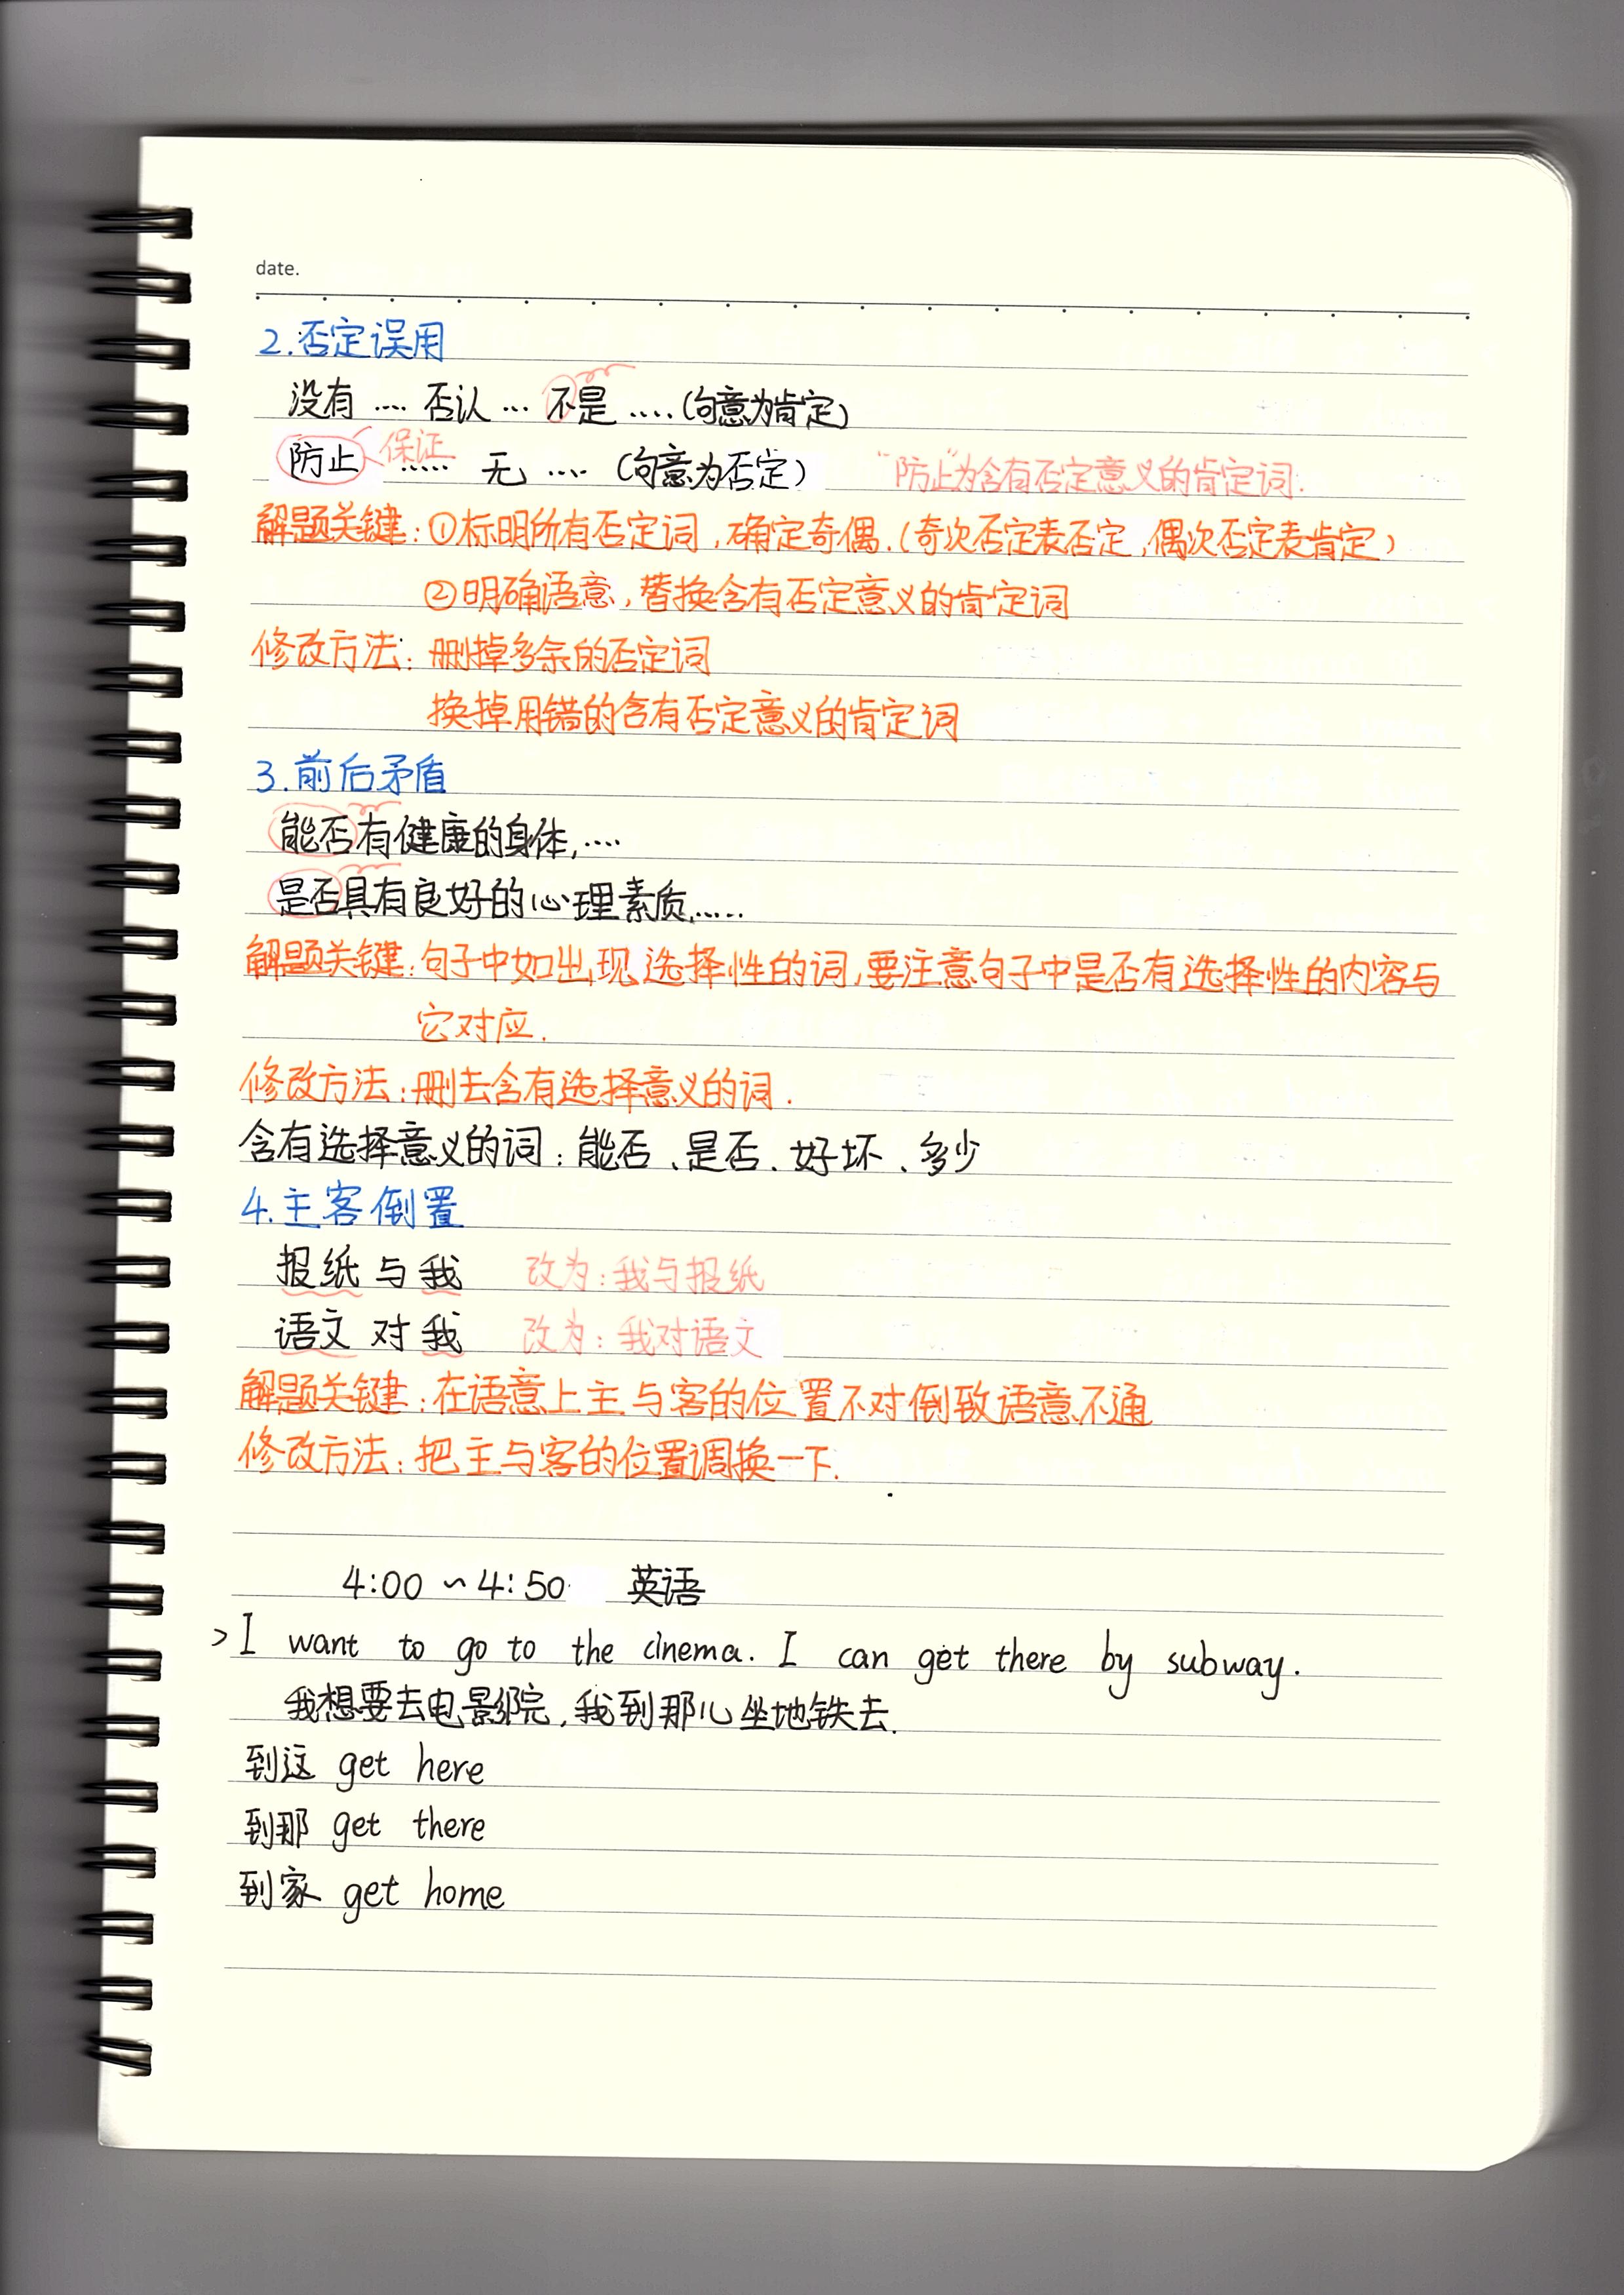 date.
2.否定误用
没有 .... 否认 ... 不是 .....(句意为肯定)
防止 保证 ...... 无 .... (句意为否定) “防止”为含有否定意义的肯定词.
解题关键:①标明所有否定词,确定奇偶.(奇次否定表否定,偶次否定表肯定)
②明确语意,替换含有否定意义的肯定词
修改方法:删掉多余的否定词
换掉用错的含有否定意义的肯定词
3.前后矛盾
能否有健康的身体,....
是否具有良好的心理素质,.....
解题关键:句子中如出现选择性的词,要注意句子中是否有选择性的内容与
它对应.
修改方法:删去含有选择意义的词.
含有选择意义的词:能否、是否、好坏、多少
4.主客倒置
报纸与我 改为:我与报纸
语文对我 改为:我对语文
解题关键:在语意上主与客的位置不对倒致语意不通
修改方法:把主与客的位置调换一下.
4:00 ~ 4:50 英语
>I want to go to the cinema. I can get there by subway.
我想要去电影院,我到那儿坐地铁去.
到这 get here
到那 get there
到家 get home